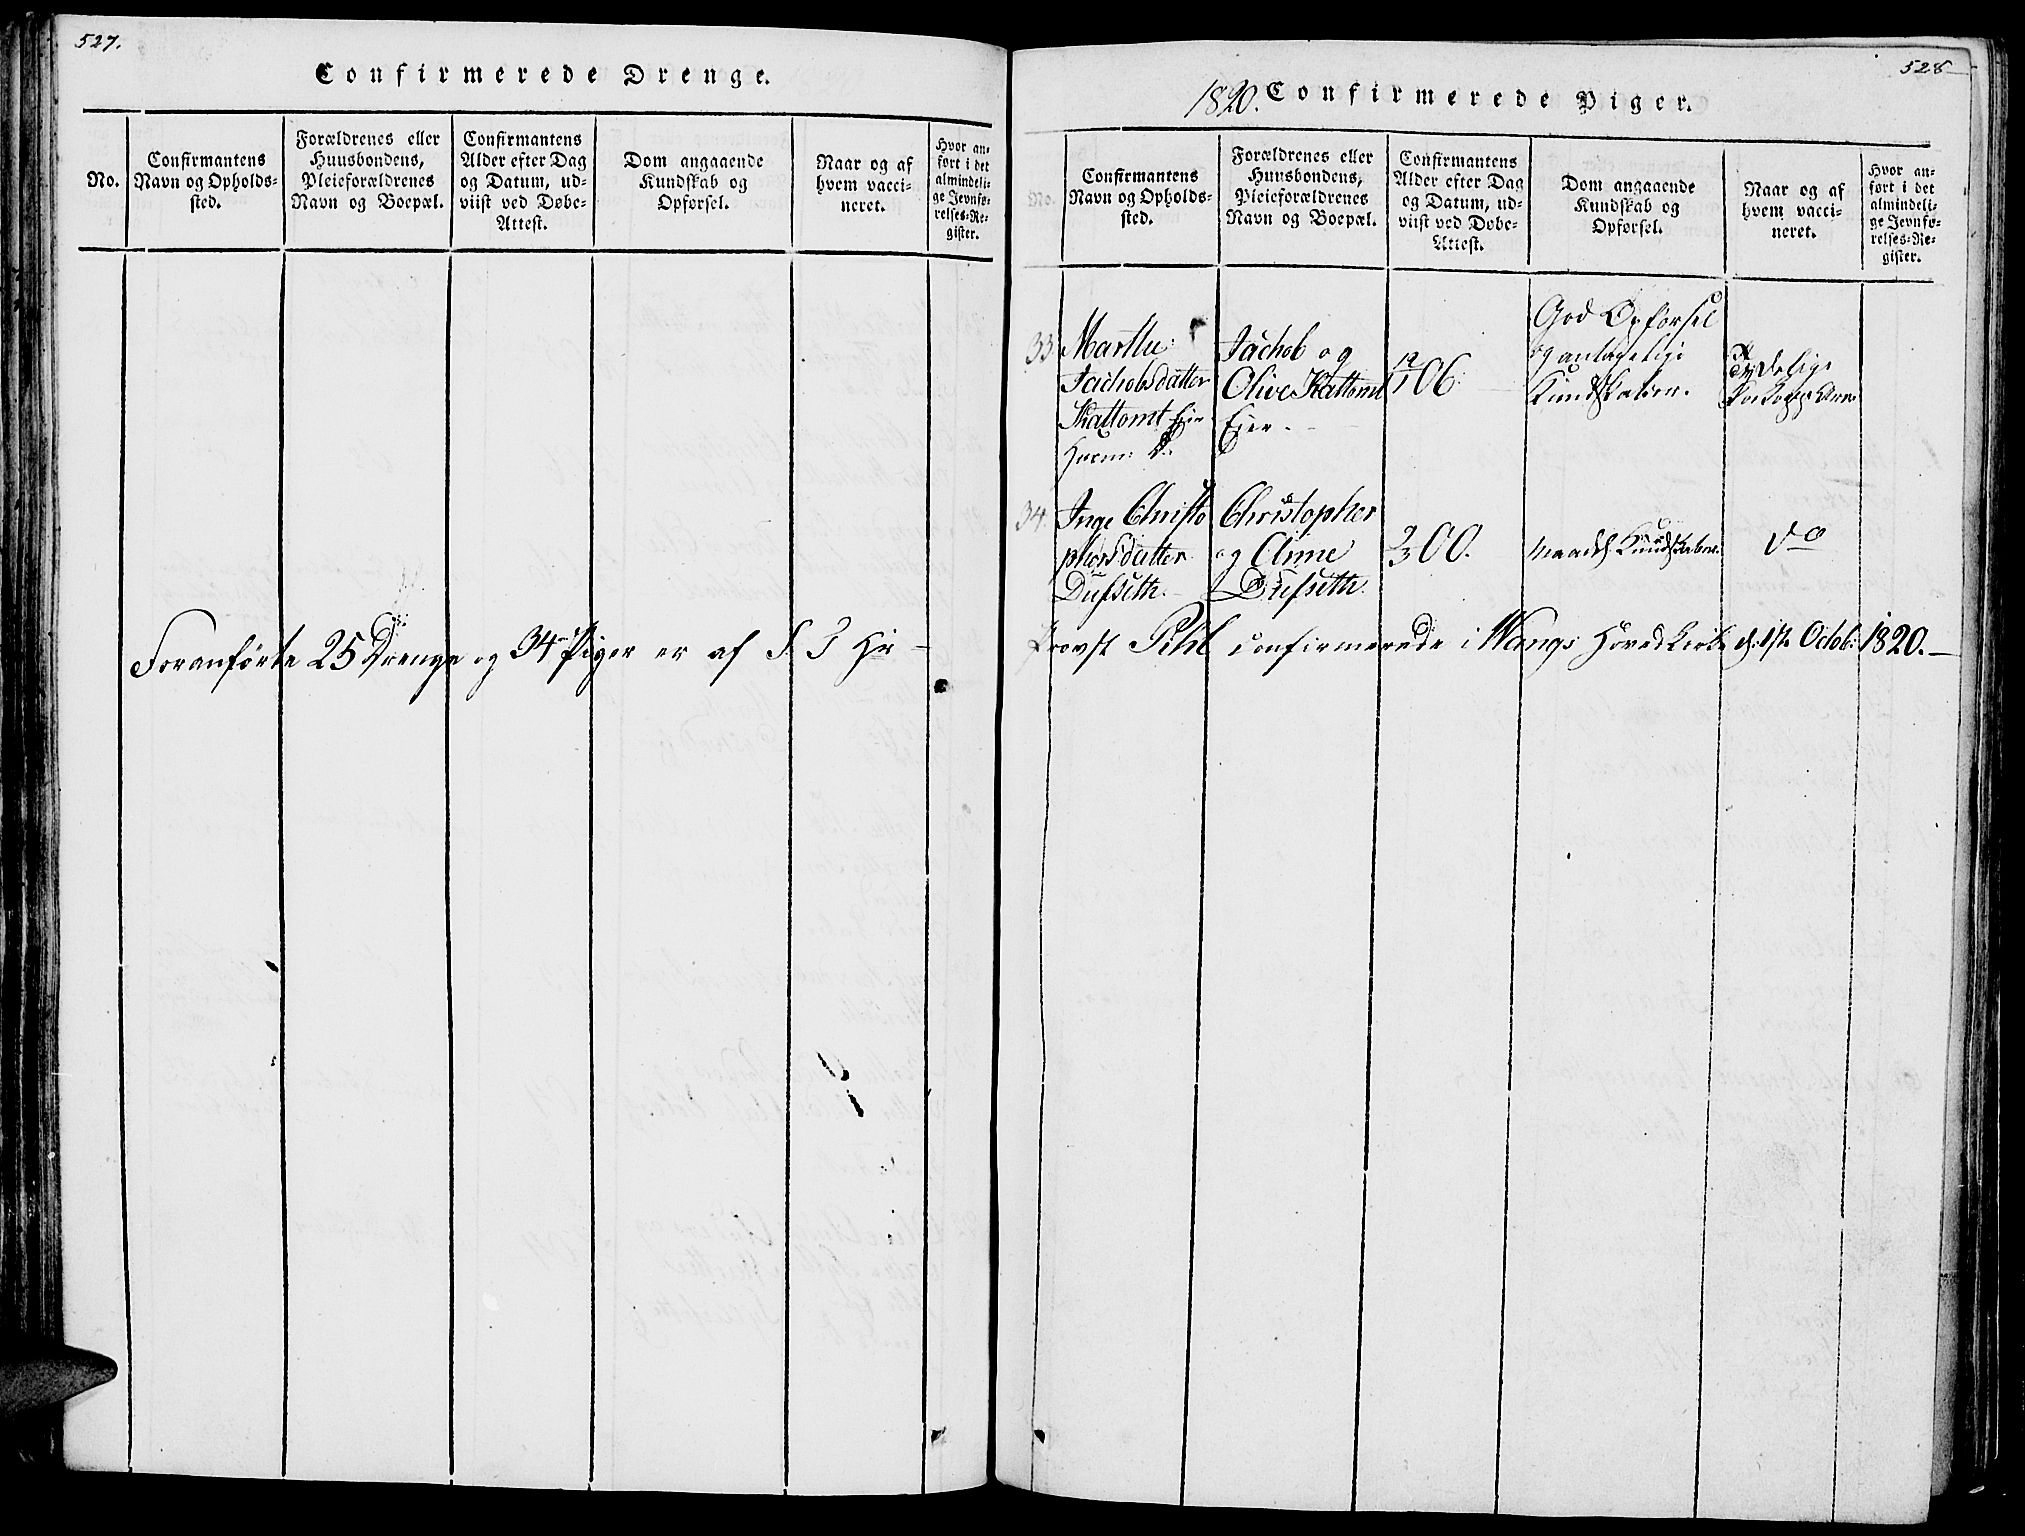 527.
Confirmerede Drenge.
No.
Confirmantens
Navn og Opholds-
sted.
Forældrenes eller
Huusbondens,
Pleieforældrenes
Navn og Boepæl.
Confirmantens
Alder efter Dag
og Datum, ud-
viist ved Døbe-
Attest.
Dom angaaende
Kundskab og
Opførsel.
Naar og af
hvem vacci-
neret.
Hvor an-
ført i det
almindeli-
ge Jevnfø-
relses-Re-
gister.
Foranførte 25 Drenge og 34 Piger er af S. T. Hr
528
1820. Confirmerede Piger.
No.
Confirmantens
Navn og Opholds-
sted.
Forældrenes eller
Huusbondens,
Pleieforældrenes
Navn og Boepæl.
Confirmantens
Alder efter Dag
og Datum, ud-
viist ved Døbe-
Attest.
Dom angaaende
Kundskab og
Opførsel.
Naar og af
hvem vacci-
neret.
Hvor an-
ført i det
almindeli-
ge Jevnfø-
relses-Re-
gister.
33
Marthe
Jachobsdatter
Skattomt Eier
Jachob og
Olive Skattomt
Eier.
06.
God Opførsel
og antagelige
Kundskaber.
Tydelige
34.
Inge Christo
phersdatter
Dufseth.
Christopher
og Anne
Dufseth.
2/3 00.
maadel. Kundskaber.
do
Provst Pihl confirmerede i Wangs Hovedkirke d. 1ste Octob. 1820.